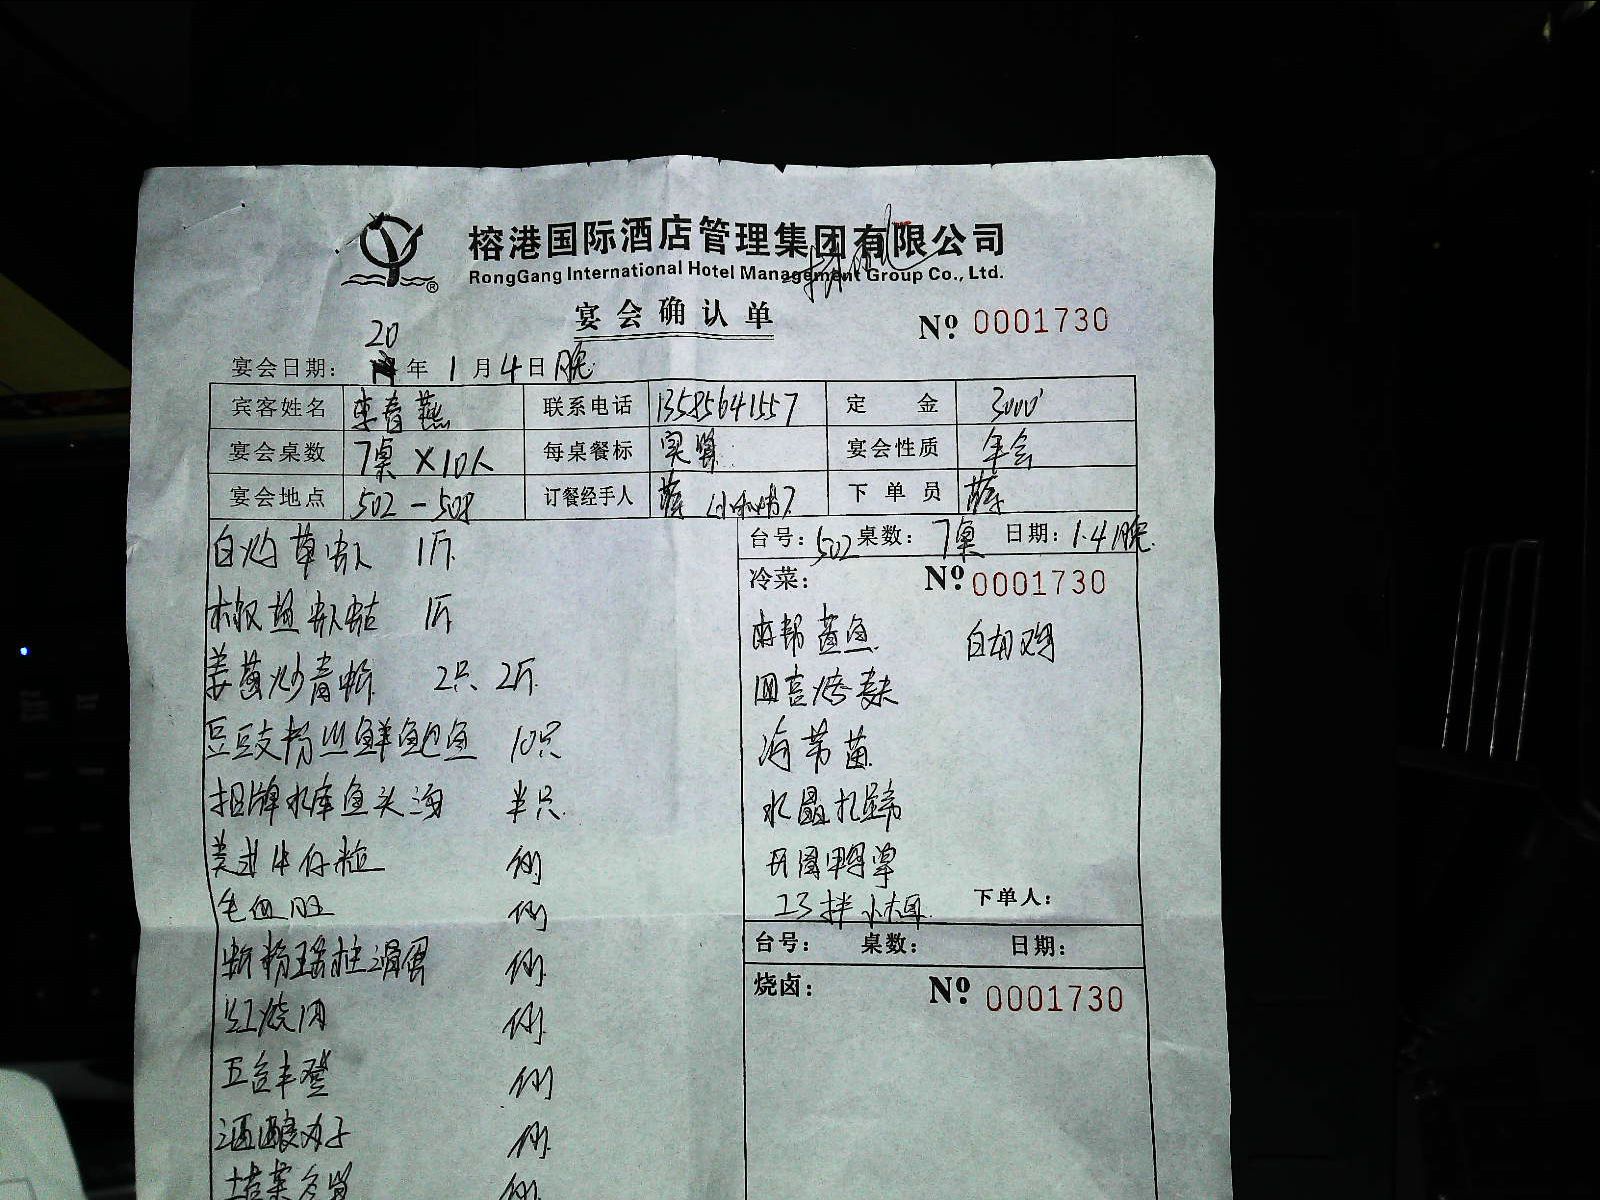 榕港国际酒店管理集团有限公司
RongGang International Hotel Management Group Co., Ltd.
宴会确认单
№ 0001730
宴会日期: 20 年 1 月 4 日 晚
宾客姓名 李春燕 联系电话 13585641557 定金 3000
宴会桌数 7桌×10人 每桌餐标 实算 宴会性质 年会
宴会地点 502-508 订餐经手人 下单员
白灼草虾 1斤
椒盐虾蛄 1斤
姜葱炒青蟹 2只 2斤
豆豉粉丝鲜鲍鱼 10只
招牌水库鱼头汤 半只
美式牛仔粒 例
毛血旺 例
蟹粉瑶柱滑蛋 例
红烧肉 例
五谷丰登 例
酒酿丸子 例
例
台号: 502 桌数: 7桌 日期: 1.4 晚
冷菜: № 0001730
本帮酱鱼 白切鸡
四喜烤麸
海苔苗
水晶扎蹄
开胃鸭掌
拌
下单人:
台号: 桌数: 日期:
烧卤: № 0001730